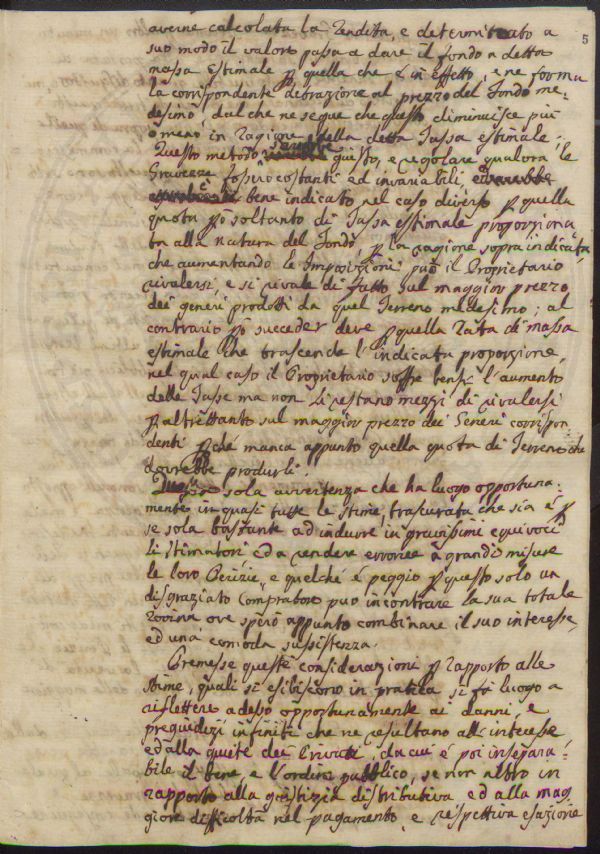 5
averne calcolata la rendita, e determinato a
suo modo il valore passa a dare il fondo a detta
massa estimale p quella che è in effetto, e ne forma
la corrispondente detrazione al prezzo del fondo me-
desimo, dal che ne segue che questo diminuisce più
o meno in ragione della detta Tassa estimale;
Questo metodo sarebbe giusto, e regolare qualora le
Gravezze fossero costanti ed invariabili
bene indicato nel caso diverso p quella
quota po soltanto di Tassa estimale proporziona
ta alla natura del fondo, p la ragione sopra indicata
che aumentando le Imposizioni può il Proprietario
rivalersi, e si rivale di fatto sul maggior prezzo
dei generi prodotti da quel Terreno medesimo; al
contrario po succeder deve p quella rata di massa
estimale che trascende l'indicata proporzione,
nel qual caso il Proprietario soffre bensì l'aumento
delle Tasse ma non li restano mezzi di rivalersi
p altrettanto sul maggior prezzo dei Generi corrispon
denti pché manca appunto quella quota di Terreno che
dovrebbe produrli.
Questa sola avvertenza che ha luogo opportuna-
mente in quasi tutte le stime, trascurata che sia è p
se sola bastante ad indurre in gravissimi equivoci
li stimatori, ed a rendere erronee a grandi misure
le loro Perizie, e quelché è peggio p questo solo un
disgraziato Compratore può incontrare la sua totale
rovina ove sperò appunto combinare il suo interesse,
ed una comoda sussistenza.
Premesse queste considerazioni p rapporto alle
stime, quali si esibiscono in pratica si fà luogo a
riflettere adesso opportunamente ai danni, e
pregiudizi infiniti che ne resultano all'interesse
ed alla quiete dei Privati, da cui è poi insepara-
bile il bene, e l'ordine pubblico, se non altro in
rapporto alla giustizia distributiva ed alla mag
giore difficoltà nel pagamento, e respettiva esazione